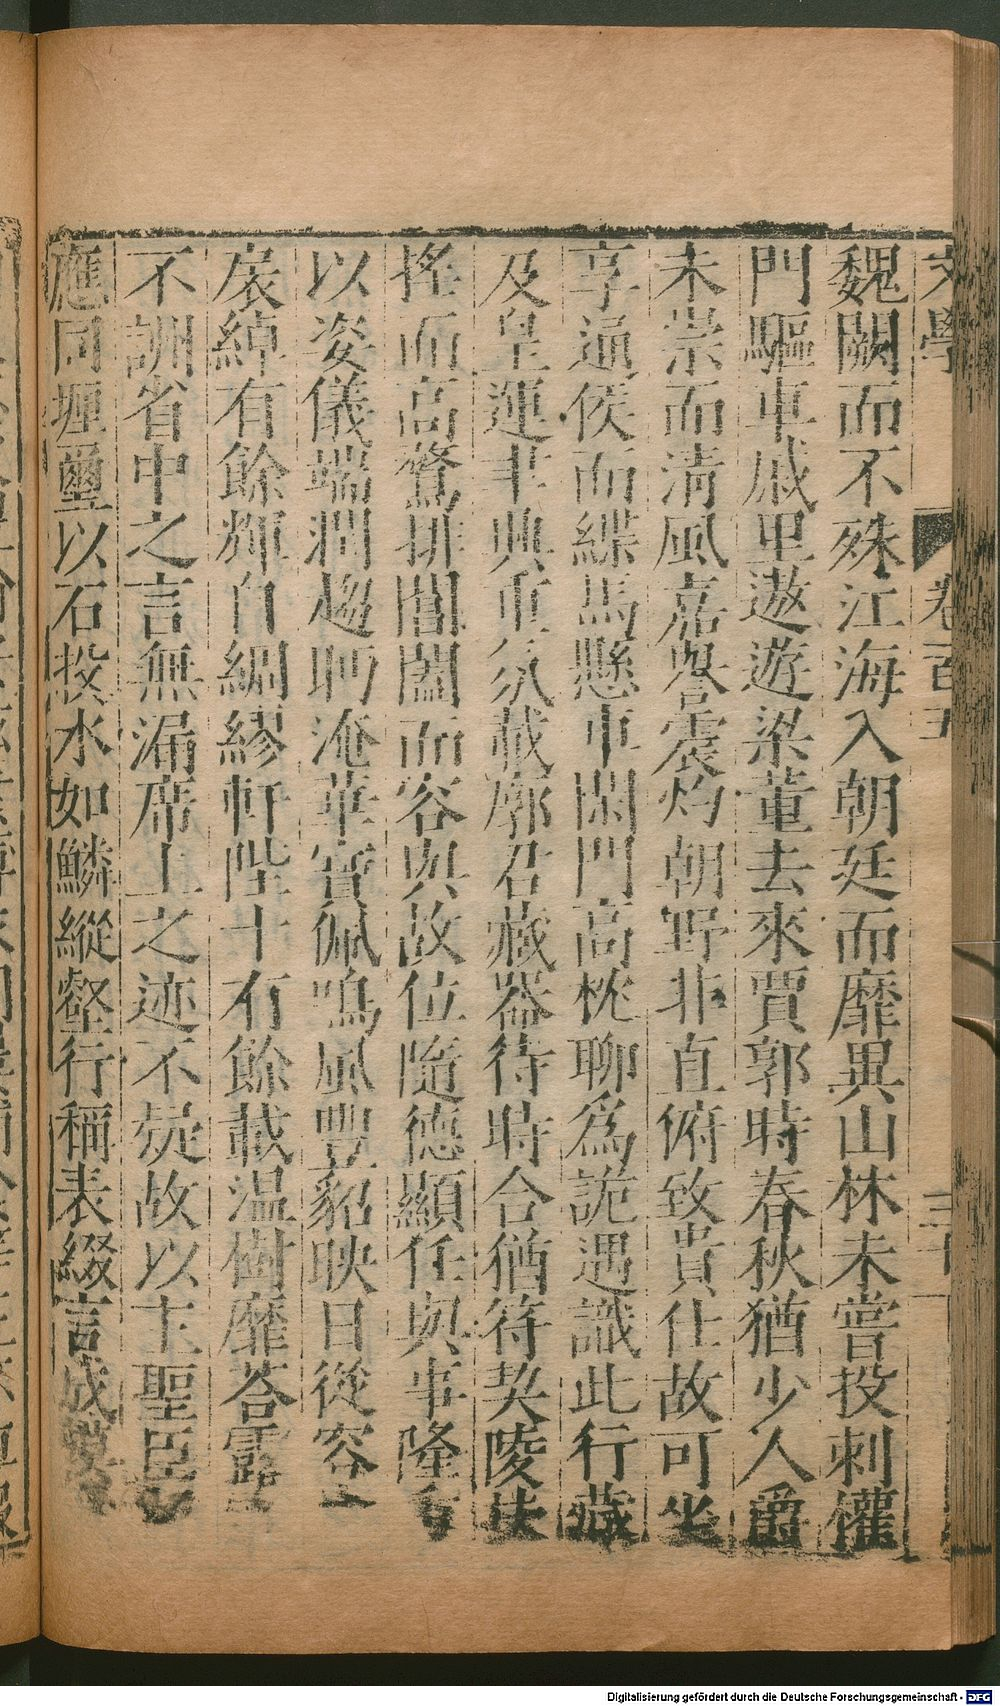 文學
卷百五
三十
魏闕而不殊江海入朝廷而靡異山林未嘗投刺權
門驅車戚里遨遊梁董去來賈郭時春秋猶少人爵
未崇而淸風嘉譽震灼朝野非直俯致貴仕故可坐
享通侯而緤馬懸車閑門高枕聊爲詭遇識此行藏
及皇運丰典重氛載廓君藏器待時合猶符契陵扶
搖而高騖排閶闔而容與故位隨德顯任與事隆
以姿儀端潤趨眄淹華實佩鳴風豐貂映日從容
扆綽有餘輝自綢繆軒陛十有餘載温樹靡荅露
不訓省中之言無漏席上之迹不疑故以主聖臣
應同堙璽以石投水如鱗縱壑行稱表綴言成
Digitalisierung gefördert durch die Deutsche Forschungsgemeinschaft - DFG